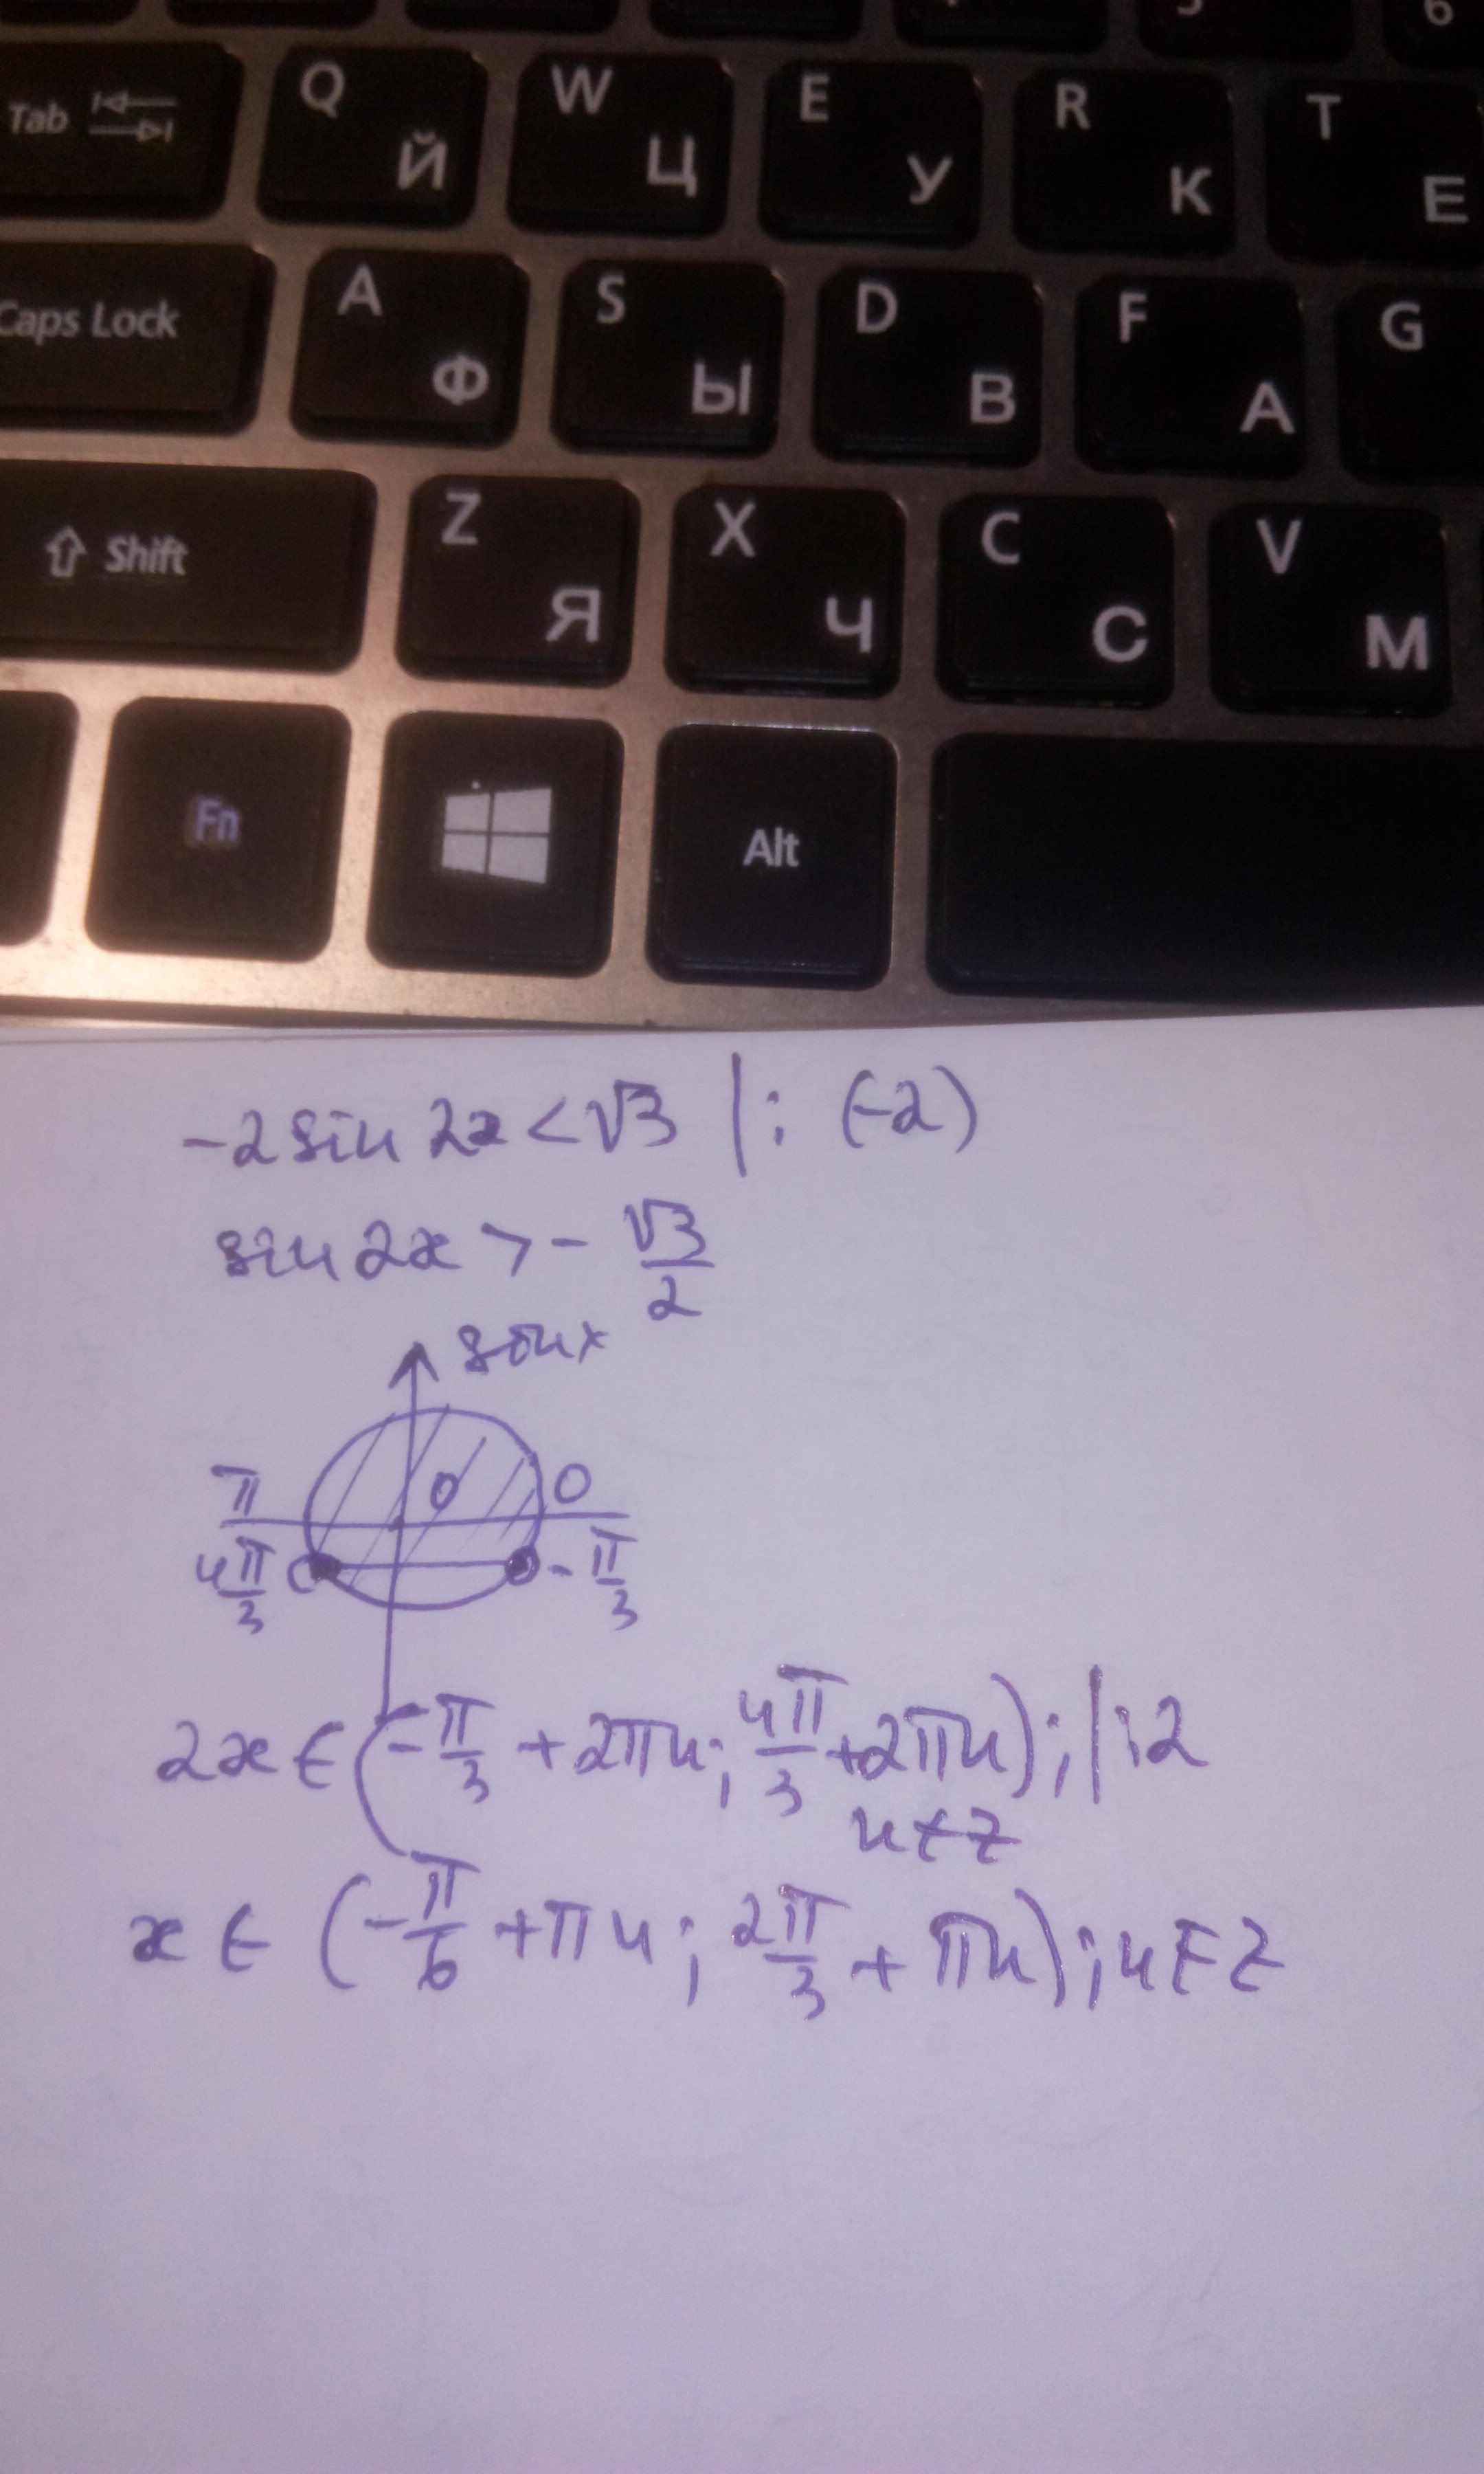 5 6
Tab Q Й W Ц E У R К T Е
Caps Lock A Ф S Ы D В F А G
Shift Z Я X Ч C С V М
Fn Alt
-2sin 2x < √3 | : (-2)
sin 2x > - √3/2
sin x
π 0 0
4π/3 -π/3
2x ∈ (-π/3 + 2πn; 4π/3 + 2πn); | :2
n ∈ Z
x ∈ (-π/6 + πn; 2π/3 + πn); n ∈ Z